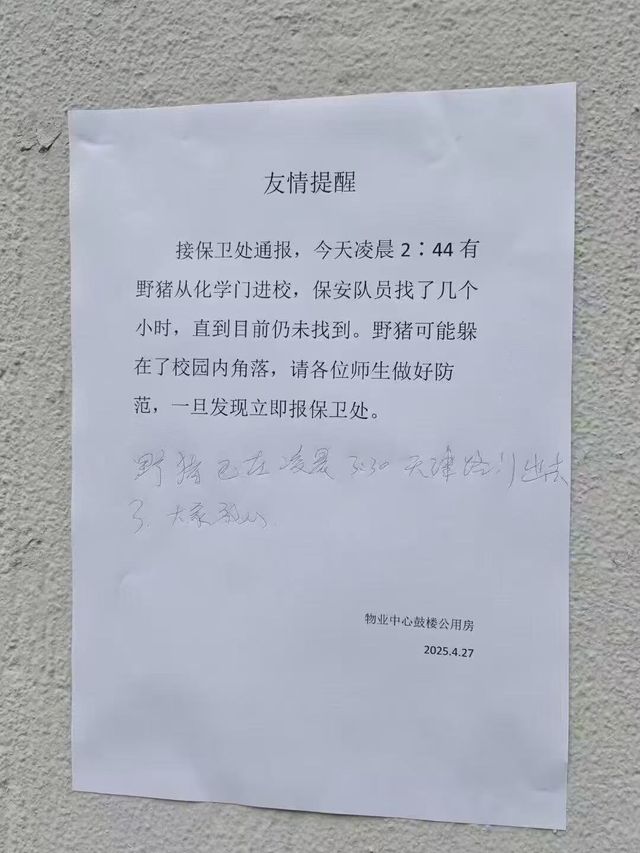 友情提醒
接保卫处通报，今天凌晨2：44有
野猪从化学门进校，保安队员找了几个
小时，直到目前仍未找到。野猪可能躲
在了校园内角落，请各位师生做好防
范，一旦发现立即报保卫处。
野猪已在凌晨3:30天津路门出去
了，大家放心
物业中心鼓楼公用房
2025.4.27